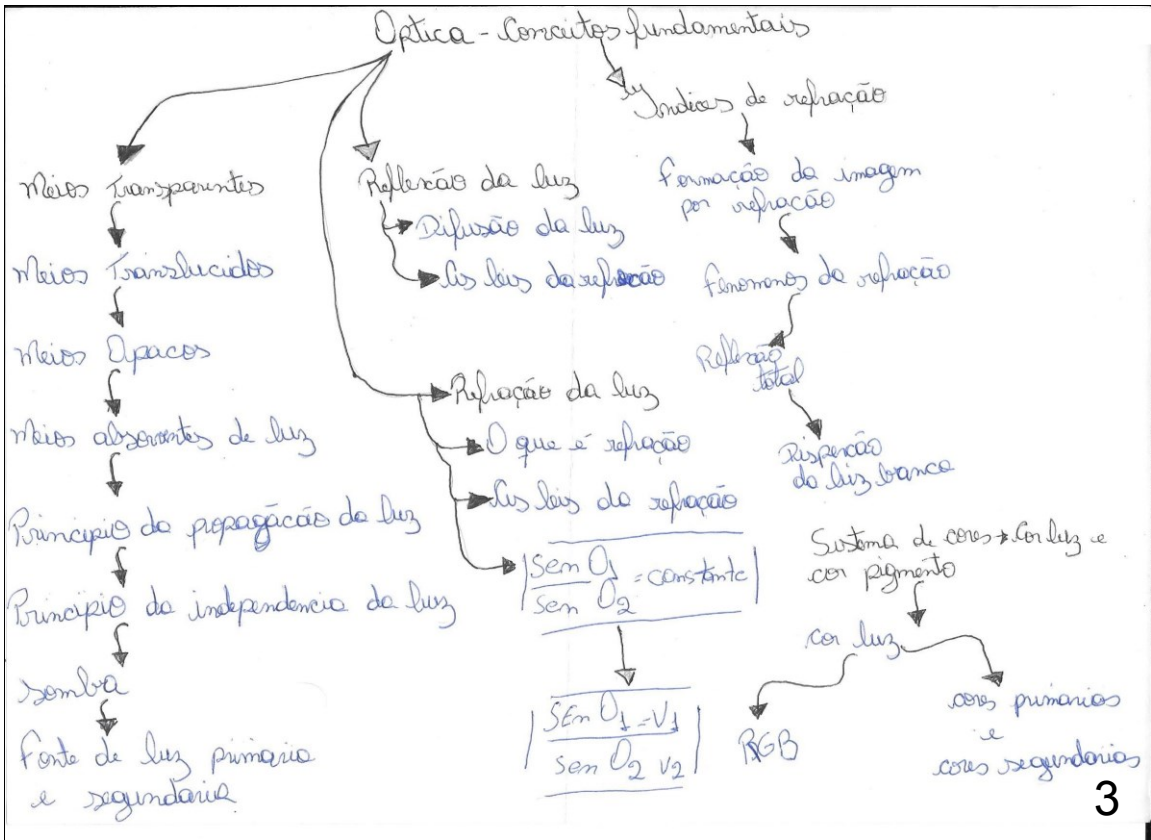 Optica - Conceitos fundamentais
Meios Transparentes
Meios Translucidos
Meios Opacos
Meios absorventes de luz
Principio da propagação da luz
Principio da independencia da luz
Sombra
Fonte de luz primaria
e segundaria
Reflexão da luz
Difusão da luz
As leis da refração
Refração da luz
O que é refração
As leis da refração
Sen O1 = constante
Sen O2
SEn O1 = V1
Sen O2 V2
Indices de refração
Formação da imagem
por refração
Fenomenos da refração
Reflexão
total
Disperção
da luz branca
Sistema de cores → Cor luz e
cor pigmento
cor luz
RGB
cores primarias
e
cores segundarias
3